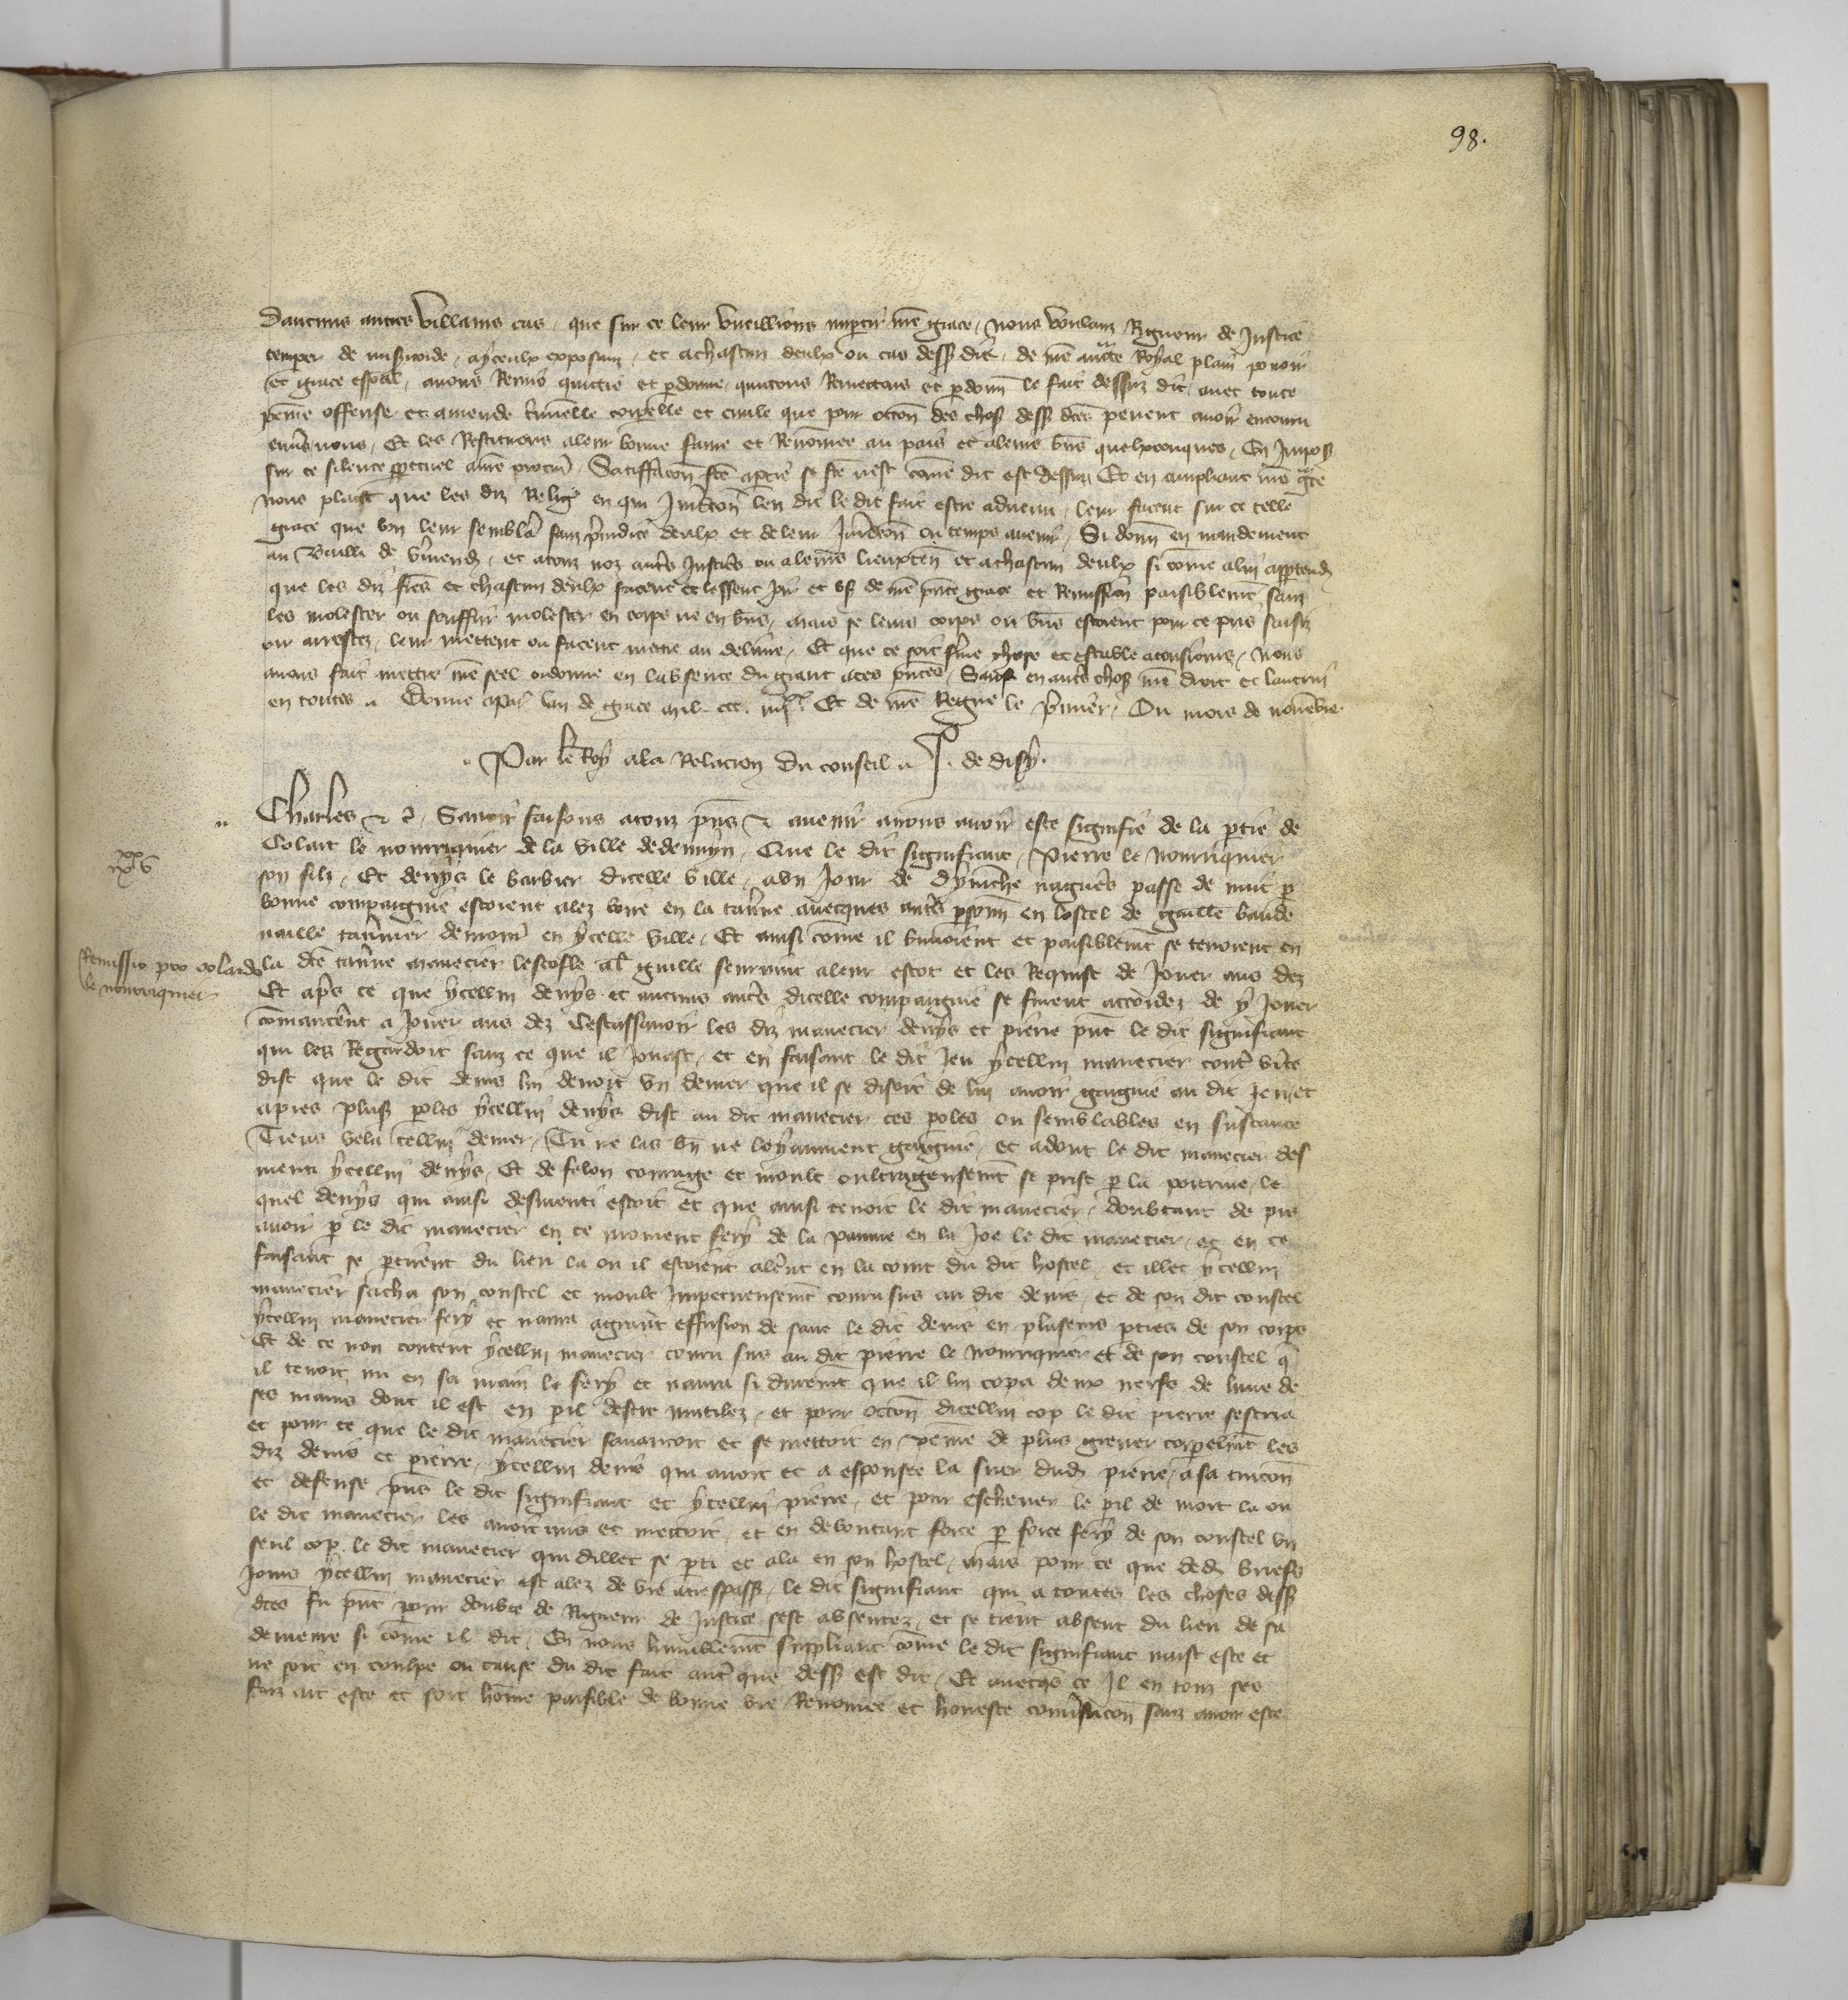 98.
Daucuns autres villains cas, que sur ce leur vueillions impartir nre grace, Nous voulans Rigueur de Justice
temper de misicorde, ayceulx exposans, et achascun deulx ou cas dessus dit, de nre aucte Royal plain pouoir
et grace espal, auons Remis quictie et pdonne, quictons Remectons et pdonn le fait dessus dit, auec toute
peine offense et amende crimelle corpelle et ciuile que pour occon des choses dess dces peuent auoir encouru
enuers nous, Et les Restituons aleur bonne fame et Renommee au pais et aleurs bns quelxconques, En Impos
sur ce silence ppetuel anre procur, Satiffacon fte aptie se fte nest come dit est dessus, Et en ampliant nre gce
Nous plaist que les diz Relig en qui Juridcon len dit le dit fait estre aduenu, leur facent sur ce telle
grace que bon leur semblera sanz preiudice deulx et de leur Juridcon ou temps auenir, Si donn en mandement
au Bailli de Vmend, et atouz noz autres Justics ou aleurs lieuxten et achascun deulx si come alui apptend
que les diz fres et chascun deulx facent et lessent joir et us de nre pnte grace et Remission paisiblemt sanz
les molester ou souffrir molester en corps ne en bns, mais se leurs corps ou bns estoient pour ce pris saisiz
ou arrestez, leur mettent ou facent mettre au deliure, Et que ce soit ferme chose et estable atousiours, Nous
auons fait mettre nre seel ordonne en labsence du grant aces pntes, Sauf en autres choses nre droit et lautrui
en toutes. Donne apar lan de grace mil ccc. iiijxx Et de nre Regne le primier, Ou mois de nouebre
Par le Roy ala Relacion du conseil. J. de disy.
Charles & c, Sauoir faisons atouz pns & auenir anous auoir este signifie de la ptie de
Colart le nourriquier de la ville dedennyn, Que le dit signifiant, Pierre le nourriquier
son filz, Et denys le barbier dicelle ville, abn Jour de dymche nagueres passe de nuit p
bonne compaignie estoient alez boire en la tauerne auecques autres psonn en lostel de guille baude
naille tauernier demour en ycelle ville, Et ainsi come il buuoient et paisiblemt se tenoient en
la dte tauerne manecier lescosle al guille seuruint aleur escot et les Requist de Jouer aus dez
Et apres ce que ycellui denys et aucuns autres dicelle compaignie se furent accordez de y Jouer
comancerent a Jouer aus dez Cestassauoir les diz manecier denys et pierre pnt le dit signifiant
qui les Regardoit sanz ce que il Jouast, et en faisant le dit Jeu ycellui manecier contre verite
dist que le dit denis lui deuoit vn denier que il se disoit de lui auoir gaignie au dit Jeu et
apres plus poles ycellui denys dist au dit manecier ces poles ou semblables en sustance
Tiens vela cellui denier, Tu ne las bn ne loyaument gaignie, et adont le dit manecier des
menti ycellui denys, Et de felon courage et moult oultrageusemt se prist p la poitrine, le
quel denys qui ainsi desmenti estoit et que ainsi tenoit le dit manecier, doubtant de pis
auoir p le dit manecier en ce moment fery de la paume en la Joe le dit manecier, et en ce
faisant se ptirent du lieu la ou il estoient alerent en la court du dit hostel, et illec ycellui
manecier sacha son coustel et moult Impetueusemt courusus au dit denis, et de son dit coustel
ycellui manecier fery et naura agrant effusion de sanc le dit denis en pluseurs pties de son corps
Et de ce non content ycellui manecier couru sus au dit pierre le nourriquier et de son coustel q
il tenoit nu en sa main le fery et naura si duremt que il lui copa deux nerfs de lune de
ses mains dont il est en pil destre mutilez, et pour occon dicellui cop le dit pierre sescria
et pour ce que le dit manecier sauancoit et se mettoit en peine de plus greuer corpelmt les
diz denis et pierre, ycellui denis qui auoit et a espousee la suer dud pierre, a sa tuicon
et defense pns le dit signifiant et ycellui pierre, et pour escheuer le pil de mort la ou
le dit manecier les auoit mis et mettoit, et en deboutant force p force fery de son coustel vn
seul cop le dit manecier qui dillec se pti et ala en son hostel, mais pour ce que dedens briefs
Jours ycellui manecier est alez de vie atrespass, le dit signifiant qui a toutes les choses dess
dces fu pnt pour doubte de Rigueur de Justice sest absentez, et se tient absent du lieu de sa
demeure si come il dit, En nous humblemt suppliant come le dit signifiant naist este et
ne soit en coulpe ou cause du dit fait autre que dess est dit, Et auecques ce Il en touz ses
faiz ait este et soit home paisible de bonne vie Renomee et honeste conuersacon sanz auoir este
xxv
Remissio pro colardo
le nourriquier